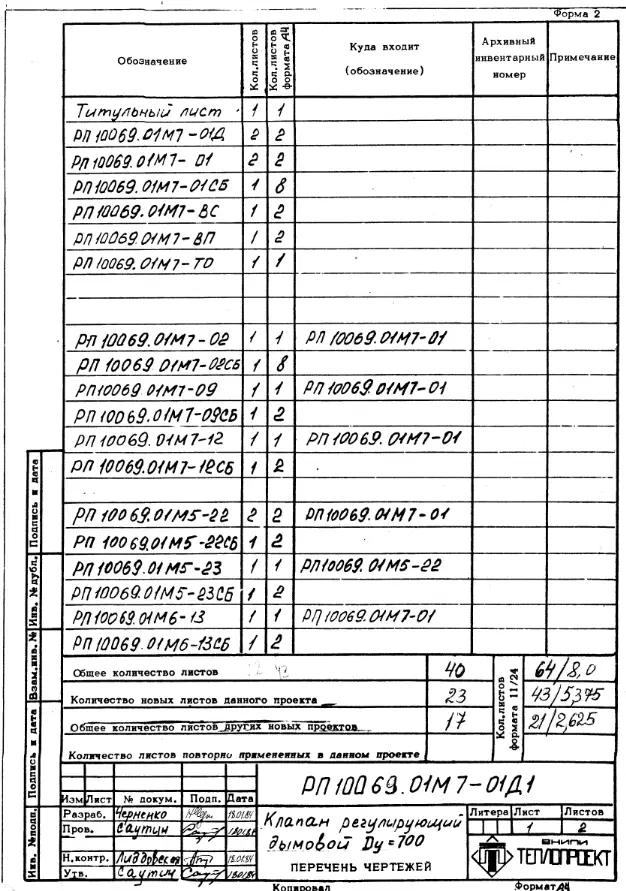 Форма 2
Обозначение Кол.листов Кол.листов формата А4 Куда входит (обозначение) Архивный инвентарный номер Примечание
Титульный лист 1 1
РП 10069.01М7-01Д 2 2
РП 10069.01М7-01 2 2
РП 10069.01М7-01СБ 1 8
РП 10069.01М7-ВС 1 2
РП 10069.01М7-ВП 1 2
РП 10069.01М7-ТО 1 1
РП 10069.01М7-02 1 1 РП 10069.01М7-01
РП 10069 01М7-02СБ 1 8
РП 10069 01М7-09 1 1 РП 10069.01М7-01
РП 10069.01М7-09СБ 1 2
РП 10069.01М7-12 1 1 РП 10069.01М7-01
РП 10069.01М7-12СБ 1 2
РП 10069.01М5-22 2 2 РП 10069.01М7-01
РП 10069.01М5-22СБ 1 2
РП 10069.01М5-23 1 1 РП 10069.01М5-22
РП 10069.01М5-23СБ 1 2
РП 10069.01М6-13 1 1 РП 10069.01М7-01
РП 10069.01М6-13СБ 1 2
Общее количество листов 40 Кол.листов формата 11/24 64/8,0
Количество новых листов данного проекта 23 43/5,375
Общее количество листов других новых проектов 17 21/2,625
Количество листов повторно примененных в данном проекте
Подпись и дата
Инв. № дубл.
Взам.инв. №
Подпись и дата
Инв. № подл.
РП 10069.01М7-01Д1
Изм Лист № докум. Подп. Дата
Разраб. Черненко 18.01.84
Пров. Саутин
Н.контр. 18.01.84
Утв. Саутин
Клапан регулирующий
дымовой Dy=700
ПЕРЕЧЕНЬ ЧЕРТЕЖЕЙ
Литера Лист Листов
1 2
ВНИПИ
ТЕПЛОПРОЕКТ
Копировал Формат А4